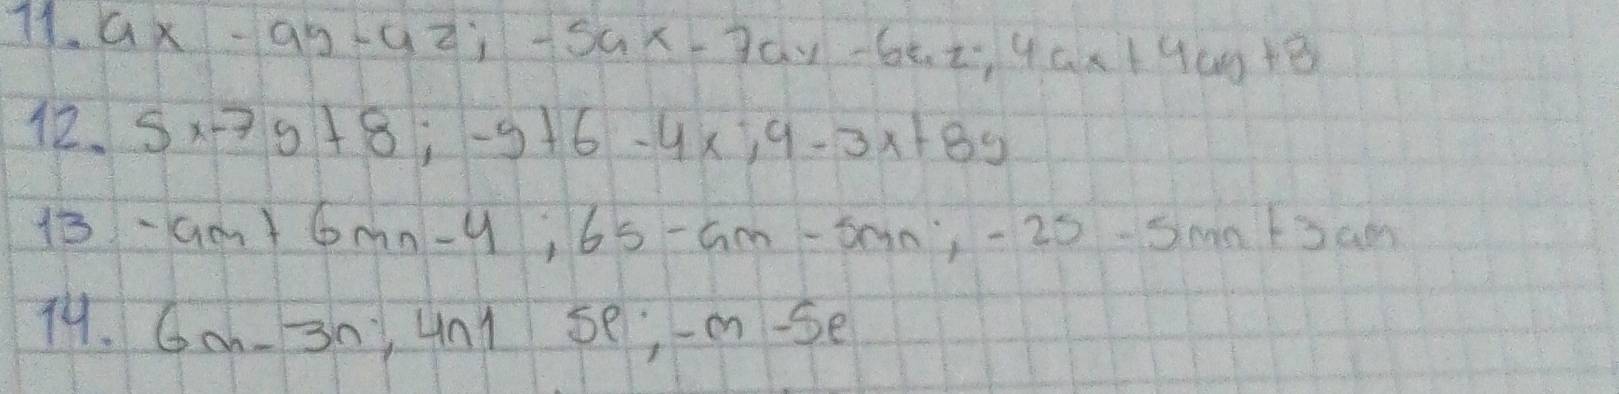 11. ax - ay - az; -5ax - 7ay - 6az; 4ax + 4ay + 8
12. 5x - 7y + 8; -y + 6 - 4x; 9 - 3x + 8y
13 -am + 6mn - 4; 6s - am - 5mn; -2s - 5mn + 3am
14. 6m - 3n; 4n 1 5p; -m - 5p